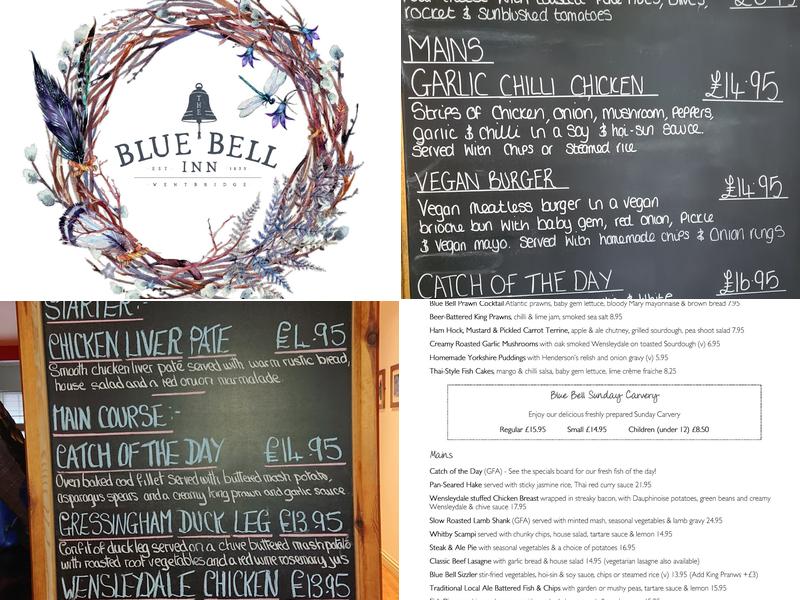 THE
BLUE BELL
INN
EST 1633
WENTBRIDGE
rocket & sunblushed tomatoes
MAINS
GARLIC CHILLI CHICKEN £14.95
Strips of Chicken, Onion, mushroom, Peppers,
garlic & chilli in a Soy & hoi-sun sauce.
Served with chips or Steamed rice
VEGAN BURGER £14.95
Vegan meatless burger in a vegan
brioche bun with baby gem, red onion, pickle
& Vegan mayo. Served with homemade chips & Onion rings
CATCH OF THE DAY £16.95
STARTER:-
CHICKEN LIVER PATE £4.95
Smooth chicken liver paté served with warm rustic bread,
house salad and a red onion marmalade.
MAIN COURSE:-
CATCH OF THE DAY £14.95
Oven baked cod fillet served with buttered mash potato,
asparagus spears and a creamy king prawn and garlic sauce.
GRESSINGHAM DUCK LEG £13.95
Confit of duck leg served on a chive buttered mash potato
with roasted root vegetables and a red wine rosemary jus
WENSLEYDALE CHICKEN £13.95
Blue Bell Prawn Cocktail Atlantic prawns, baby gem lettuce, bloody Mary mayonnaise & brown bread 7.95
Beer-Battered King Prawns, chilli & lime jam, smoked sea salt 8.95
Ham Hock, Mustard & Pickled Carrot Terrine, apple & ale chutney, grilled sourdough, pea shoot salad 7.95
Creamy Roasted Garlic Mushrooms with oak smoked Wensleydale on toasted Sourdough (v) 6.95
Homemade Yorkshire Puddings with Henderson's relish and onion gravy (v) 5.95
Thai-Style Fish Cakes, mango & chilli salsa, baby gem lettuce, lime crème fraiche 8.25
Blue Bell Sunday Carvery
Enjoy our delicious freshly prepared Sunday Carvery
Regular £15.95 Small £14.95 Children (under 12) £8.50
Mains
Catch of the Day (GFA) - See the specials board for our fresh fish of the day!
Pan-Seared Hake served with sticky jasmine rice, Thai red curry sauce 21.95
Wensleydale stuffed Chicken Breast wrapped in streaky bacon, with Dauphinoise potatoes, green beans and creamy
Wensleydale & chive sauce 17.95
Slow Roasted Lamb Shank (GFA) served with minted mash, seasonal vegetables & lamb gravy 24.95
Whitby Scampi served with chunky chips, house salad, tartare sauce & lemon 14.95
Steak & Ale Pie with seasonal vegetables & a choice of potatoes 16.95
Classic Beef Lasagne with garlic bread & house salad 14.95 (vegetarian lasagne also available)
Blue Bell Sizzler stir-fried vegetables, hoi-sin & soy sauce, chips or steamed rice (v) 13.95 (Add King Pranws +£3)
Traditional Local Ale Battered Fish & Chips with garden or mushy peas, tartare sauce & lemon 15.95